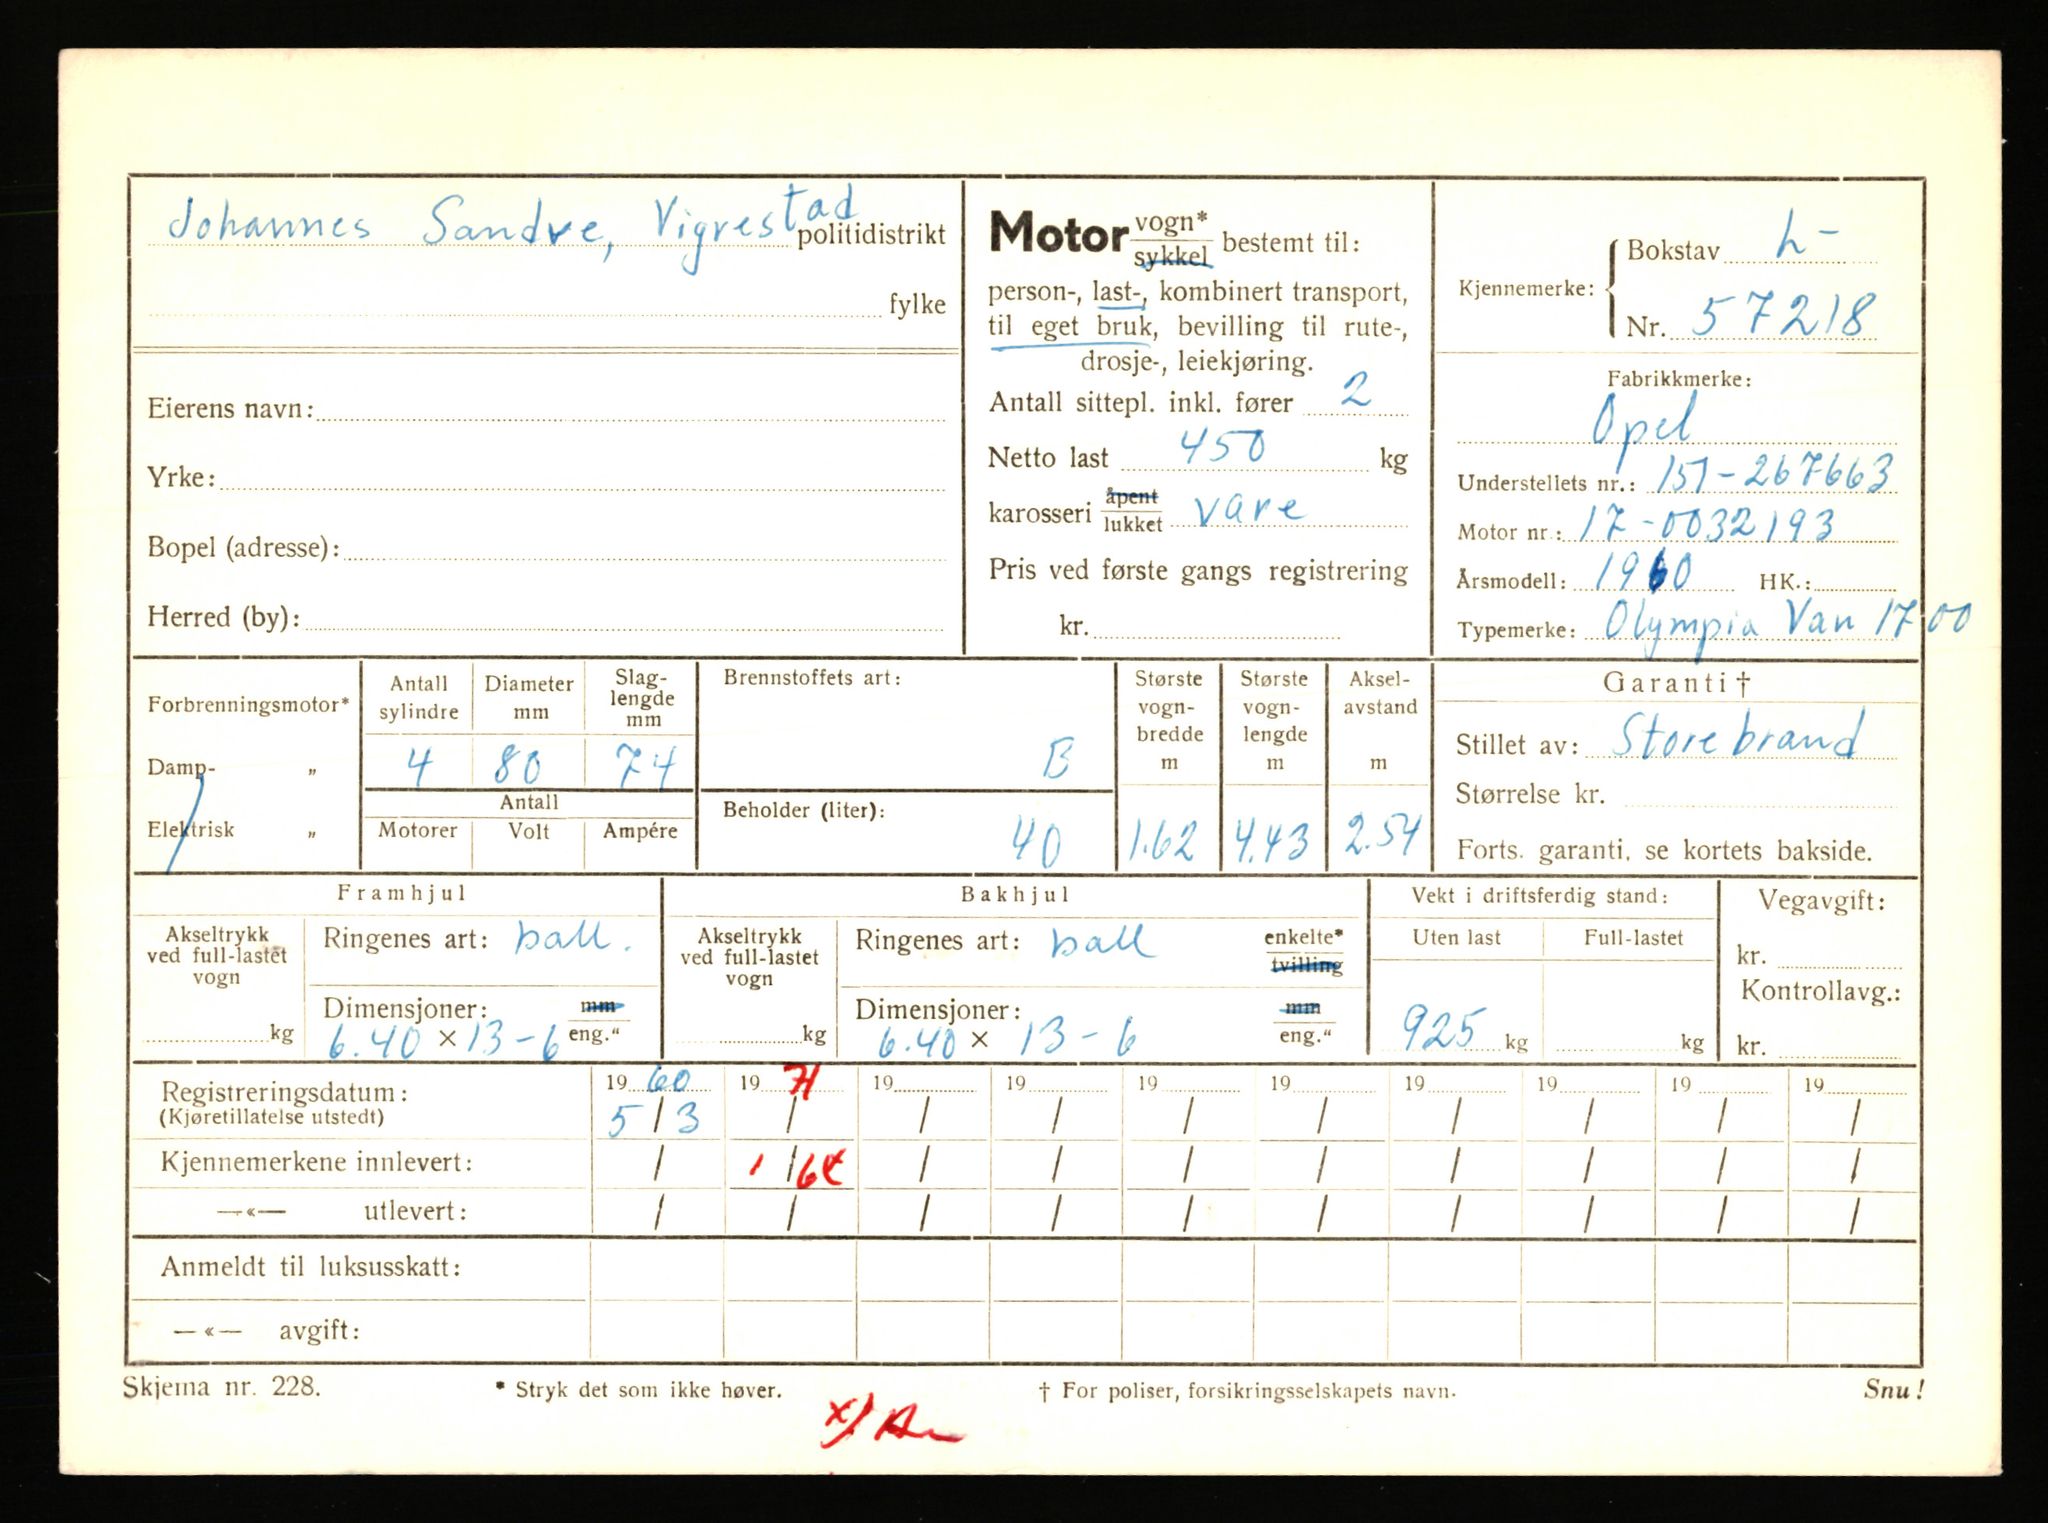 Johannes Sandve, Vigrestad politidistrikt
fylke
Eierens navn:
Yrke:
Bopel (adresse):
Herred (by):
Motor vogn* sykkel bestemt til:
person-, last-, kombinert transport,
til eget bruk, bevilling til rute-,
drosje-, leiekjøring.
Antall sittepl. inkl. fører 2
Netto last 450 kg
karosseri åpent lukket vare
Pris ved første gangs registrering
kr.
Kjennemerke: Bokstav L-
Nr. 57218
Fabrikkmerke:
Opel
Understellets nr.: 151-267663
Motor nr.: 17-0032193
Årsmodell: 1960 HK.:
Typemerke: Olympia Van 1700
Forbrenningsmotor*
Damp- „
Elektrisk „
Antall sylindre
Diameter mm
Slag-
lengde
mm
4 80 74
Antall
Motorer Volt Ampére
Brennstoffets art:
B
Beholder (liter):
40
Største
vogn-
bredde
m
1.62
Største
vogn-
lengde
m
4.43
Aksel-
avstand
m
2.54
Garanti †
Stillet av: Storebrand
Størrelse kr.
Forts. garanti, se kortets bakside.
Framhjul
Akseltrykk
ved full-lastet
vogn
kg
Ringenes art: ball.
Dimensjoner: mm
6.40 × 13-6 eng.“
Bakhjul
Akseltrykk
ved full-lastet
vogn
kg
Ringenes art: ball enkelte* tvilling
Dimensjoner: mm
6.40 × 13-6 eng.“
Vekt i driftsferdig stand:
Uten last Full-lastet
925 kg kg
Vegavgift:
kr.
Kontrollavg.:
kr.
Registreringsdatum: 19 60 19 71 19 19 19 19 19 19 19 19
(Kjøretillatelse utstedt) 5 / 3 / / / / / / / / /
Kjennemerkene innlevert: / 1 / / / / / / / / /
—«— utlevert: / / / / / / / / / /
Anmeldt til luksusskatt:
—«— avgift:
Skjema nr. 228.
* Stryk det som ikke høver.
† For poliser, forsikringsselskapets navn.
Snu!